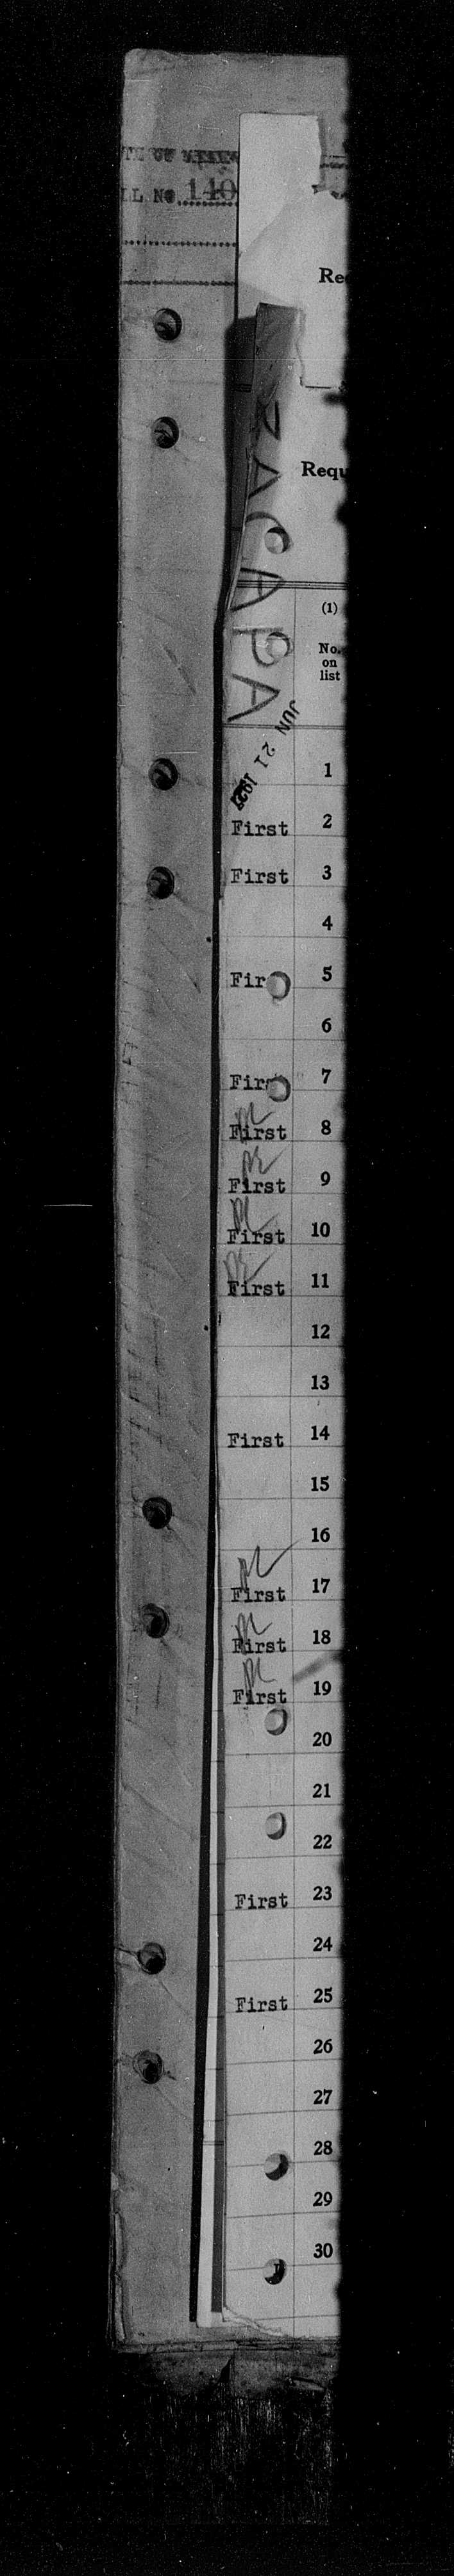 LL No. 140
Re
Requ
ZACAPA
(1)
No.
on
list
JUN 21 1927
1
First 2
First 3
4
Fir 5
6
Firs 7
First 8
First 9
First 10
First 11
12
13
First 14
15
16
First 17
First 18
First 19
20
21
22
First 23
24
First 25
26
27
28
29
30